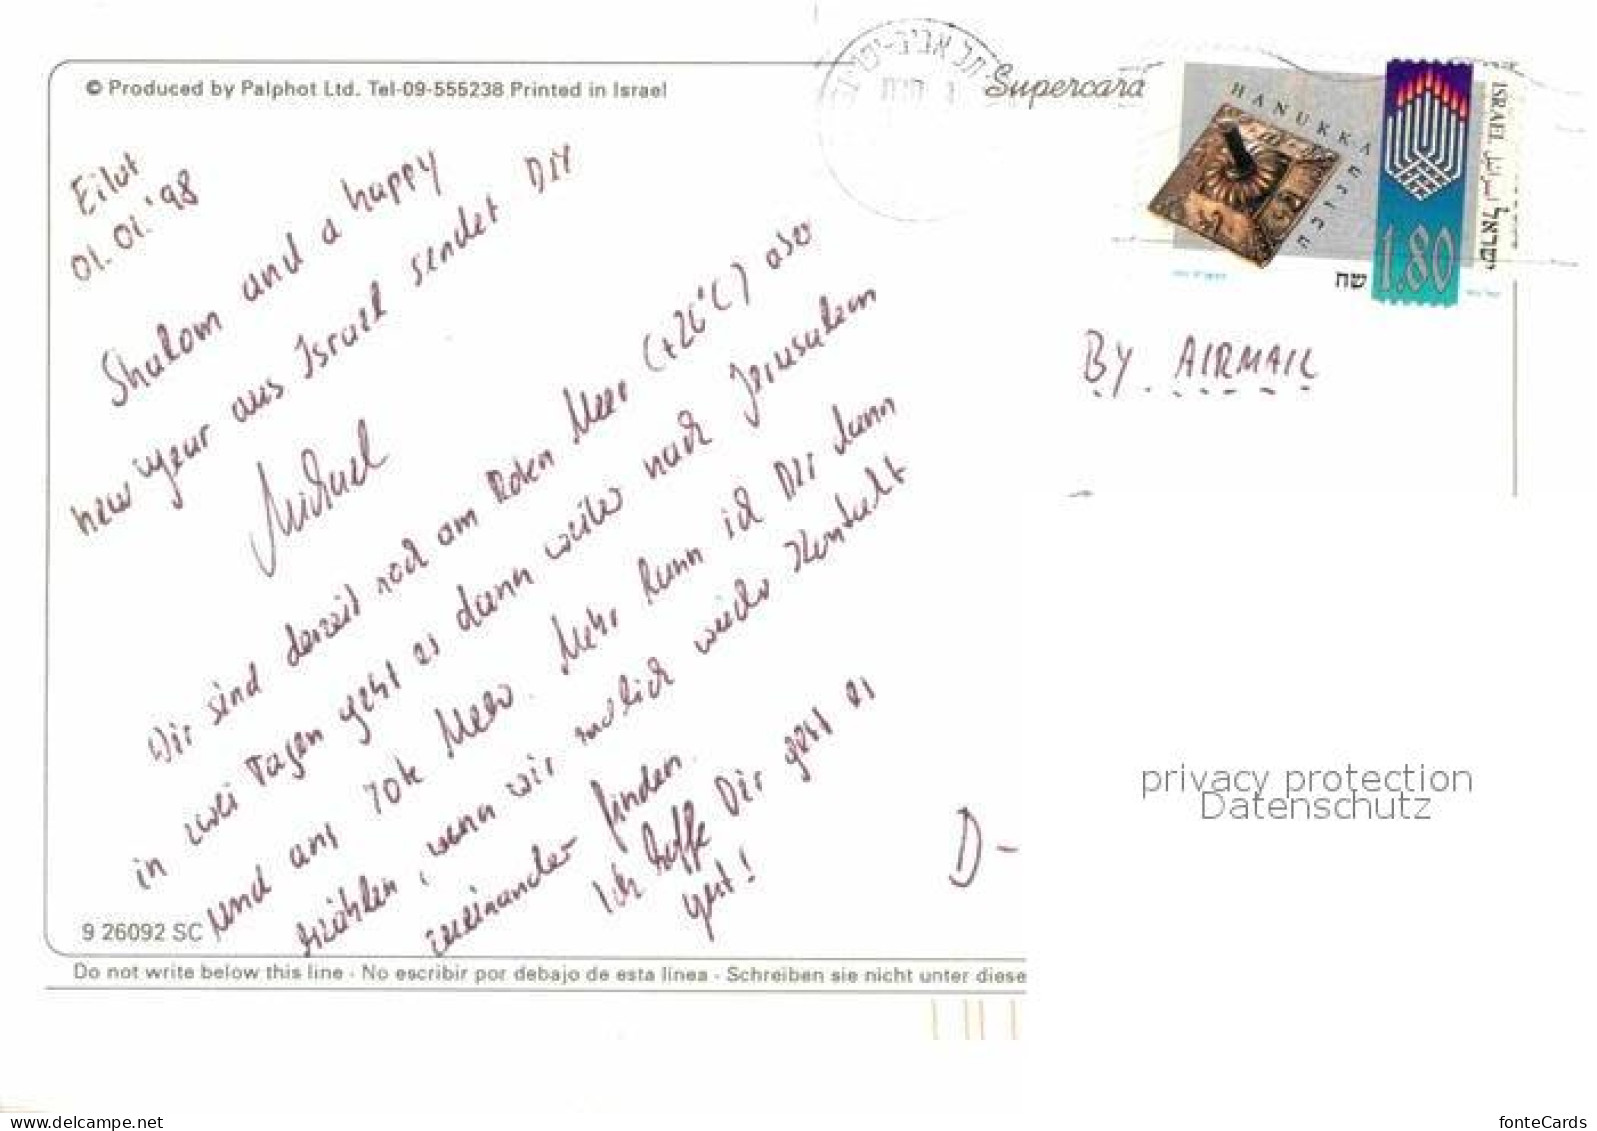 © Produced by Palphot Ltd. Tel-09-555238 Printed in Israel
Supercard
תל אביב-יפו
HANUKKA
חנוכה
ISRAEL
اسرائيل
ישראל
1.80
שח
Eilat
01.01.'98
Shalom and a happy
new year aus Israel sendet Dir
Michael
Wir sind derzeit noch am Roten Meer (+26°C) aber
in zwei Tagen geht es dann weiter nach Jerusalem
und ans Tote Meer. Mehr kann ich Dir dann
erzählen, wenn wir endlich wieder Kontakt
zueinander finden.
Ich hoffe Dir geht es
gut!
BY AIRMAIL
D-
privacy protection
Datenschutz
9 26092 SC
Do not write below this line - No escribir por debajo de esta linea - Schreiben sie nicht unter diese
delcampe.net
fonteCards